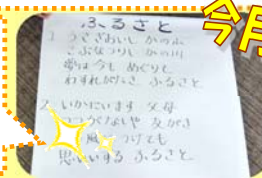 今月
ふるさと
1. うさぎおいし かの山
こぶなつりし かの川
夢は今も めぐりて
わすれがたき ふるさと
2. いかにいます 父母
つつがなしや 友がき
風 つけても
思いいずる ふるさと